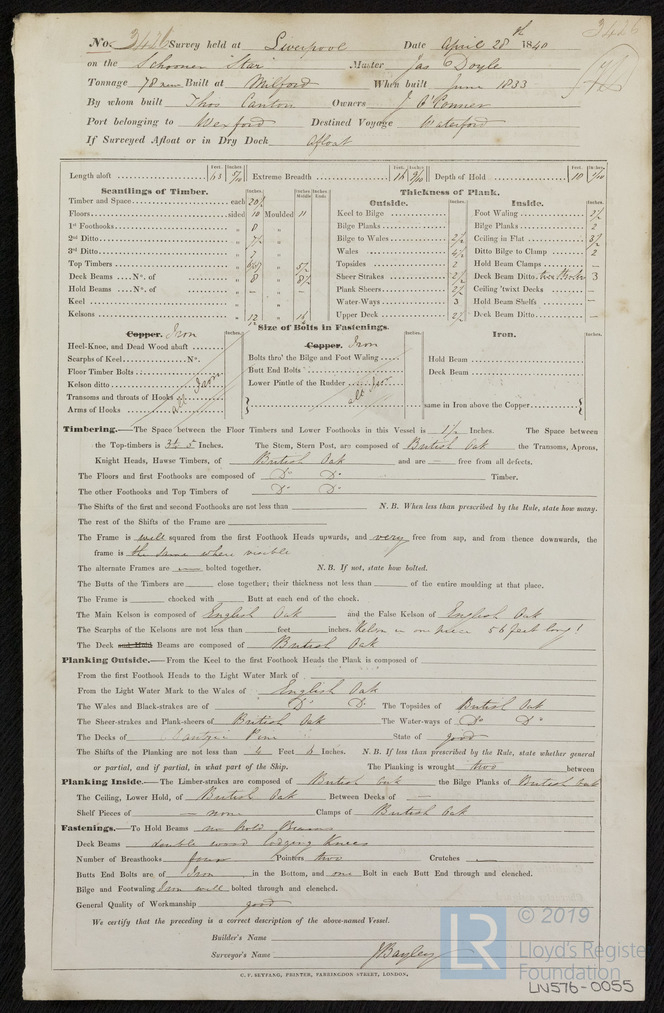 3426
No. 3426 Survey held at Liverpool Date April 28th 1840
on the Schooner "Star" Master Jas Doyle
Tonnage 78 new Built at Milford When built June 1833
By whom built Thos Canton Owners J O'Connor
Port belonging to Wexford Destined Voyage Waterford
If Surveyed Afloat or in Dry Dock Afloat
Feet. Inches. Feet. Inches. Feet. Inches.
Length aloft 63 Extreme Breadth 16 Depth of Hold 10
Scantlings of Timber. Thickness of Plank.
Inches. Inches Middle Inches Ends Outside. Inches. Inside. Inches.
Timber and Space each 20 Keel to Bilge Foot Waling
Floors sided 10 Moulded 11 Bilge Planks Bilge Planks 2
1st Foothooks 8 " Bilge to Wales 2½ Ceiling in Flat
2nd Ditto " Wales Ditto Bilge to Clamp 2
3rd Ditto " Topsides 2 Hold Beam Clamps —
Top Timbers " Sheer Strakes Deck Beam Ditto 3
Deck Beams No. of 8 " Plank Sheers Ceiling 'twixt Decks —
Hold Beams No. of — " — Water-Ways 3 Hold Beam Shelfs —
Keel " Upper Deck Deck Beam Ditto —
Kelsons 12 "
Size of Bolts in Fastenings.
Copper. Iron Inches. Copper. Iron Inches. Iron. Inches.
Heel-Knee, and Dead Wood abaft
Scarphs of Keel No. Bolts thro' the Bilge and Foot Waling Hold Beam
Floor Timber Bolts Butt End Bolts Deck Beam
Kelson ditto Iron Lower Pintle of the Rudder
Transoms and throats of Hooks all
Arms of Hooks all Iron same in Iron above the Copper
Timbering.—The Space between the Floor Timbers and Lower Foothooks in this Vessel is 1½ Inches. The Space between
the Top-timbers is 3 to 5 Inches. The Stem, Stern Post, are composed of British Oak the Transoms, Aprons,
Knight Heads, Hawse Timbers, of British Oak and are — free from all defects.
The Floors and first Foothooks are composed of Do Do Timber.
The other Foothooks and Top Timbers of Do Do
The Shifts of the first and second Foothooks are not less than N. B. When less than prescribed by the Rule, state how many.
The rest of the Shifts of the Frame are
The Frame is well squared from the first Foothook Heads upwards, and very free from sap, and from thence downwards, the
frame is the same where visible
The alternate Frames are — bolted together. N. B. If not, state how bolted.
The Butts of the Timbers are close together; their thickness not less than of the entire moulding at that place.
The Frame is chocked with Butt at each end of the chock.
The Main Kelson is composed of English Oak and the False Kelson of English Oak
The Scarphs of the Kelsons are not less than feet inches. Kelson in one piece 56 feet long!
The Deck and Hold Beams are composed of British Oak
Planking Outside.—From the Keel to the first Foothook Heads the Plank is composed of
From the first Foothook Heads to the Light Water Mark of
From the Light Water Mark to the Wales of English Oak
The Wales and Black-strakes are of Do Do The Topsides of British Oak
The Sheer-strakes and Plank-sheers of British Oak The Water-ways of Do Do
The Decks of Dantzic Pine State of good
The Shifts of the Planking are not less than 4 Feet 6 Inches. N. B. If less than prescribed by the Rule, state whether general
or partial, and if partial, in what part of the Ship. The Planking is wrought two between
Planking Inside.—The Limber-strakes are composed of British Oak the Bilge Planks of British Oak
The Ceiling, Lower Hold, of British Oak Between Decks of —
Shelf Pieces of — none Clamps of British Oak
Fastenings.—To Hold Beams no hold Beams
Deck Beams double wood lodging Knees
Number of Breasthooks four Pointers two Crutches —
Butts End Bolts are of Iron in the Bottom, and one Bolt in each Butt End through and clenched.
Bilge and Footwaling Iron well bolted through and clenched.
General Quality of Workmanship good
We certify that the preceding is a correct description of the above-named Vessel.
Builder's Name
Surveyor's Name J Bayley
C. F. SEYFANG, PRINTER, FARRINGDON STREET, LONDON.
LR © 2019
Lloyd's Registe
Foundation
LN576-0055